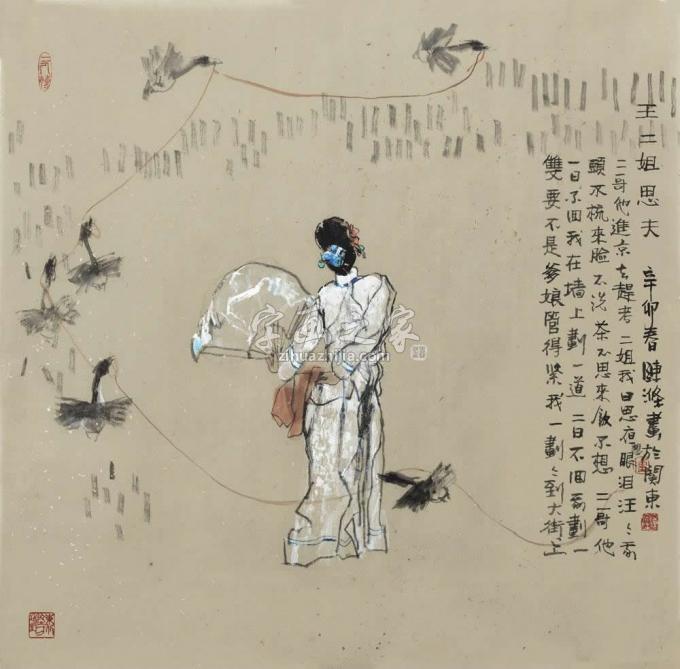 王二姐思夫 辛卯春陳滌畫於關東
二哥他進京去趕考二姐我日思夜想眼泪汪〻我
頭不梳來臉不洗茶不思來飯不想二哥他
一日不回我在墙上劃一道二日不回我劃一
雙要不是爹娘管得緊我一劃〻到大街上
字画之家
zihuazhijia.com